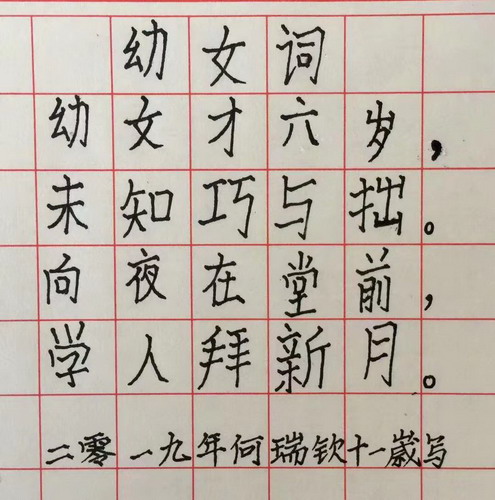 幼女词
幼女才六岁，
未知巧与拙。
向夜在堂前，
学人拜新月。
二零一九年何瑞钦十一歲写